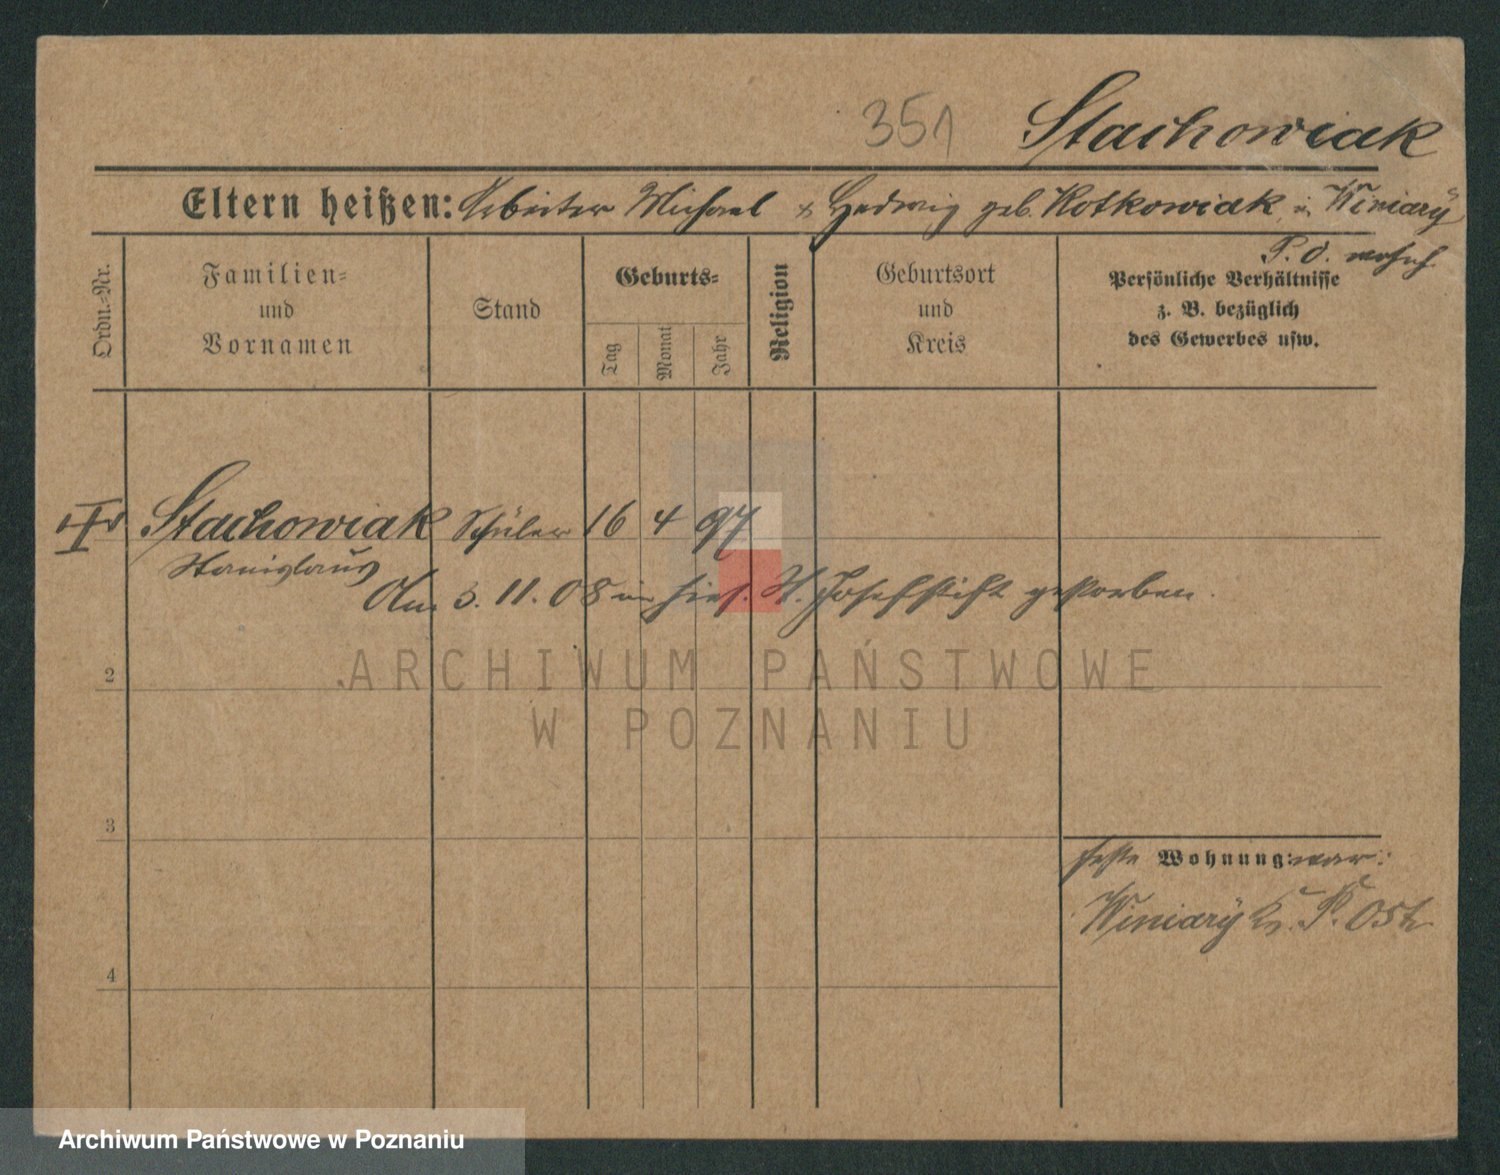 351 Stachowiak
Eltern heißen: Arbeiter Michael & Hedwig geb. Kotkowiak in Winiary
P. O. wohnh.
Ordn.-Nr.
Familien-
und
Vornamen
Stand
Geburts-
Tag
Monat
Jahr
Religion
Geburtsort
und
Kreis
Persönliche Verhältnisse
z. B. bezüglich
des Gewerbes usw.
Stachowiak Schüler 16 4 97
Stanislaus
Am 3. 11. 08 im hies. St. Josefstift gestorben.
2
3
4
Wohnung: war:
Winiary Kr. P. Ost
ARCHIWUM PAŃSTWOWE
W POZNANIU
Archiwum Państwowe w Poznaniu